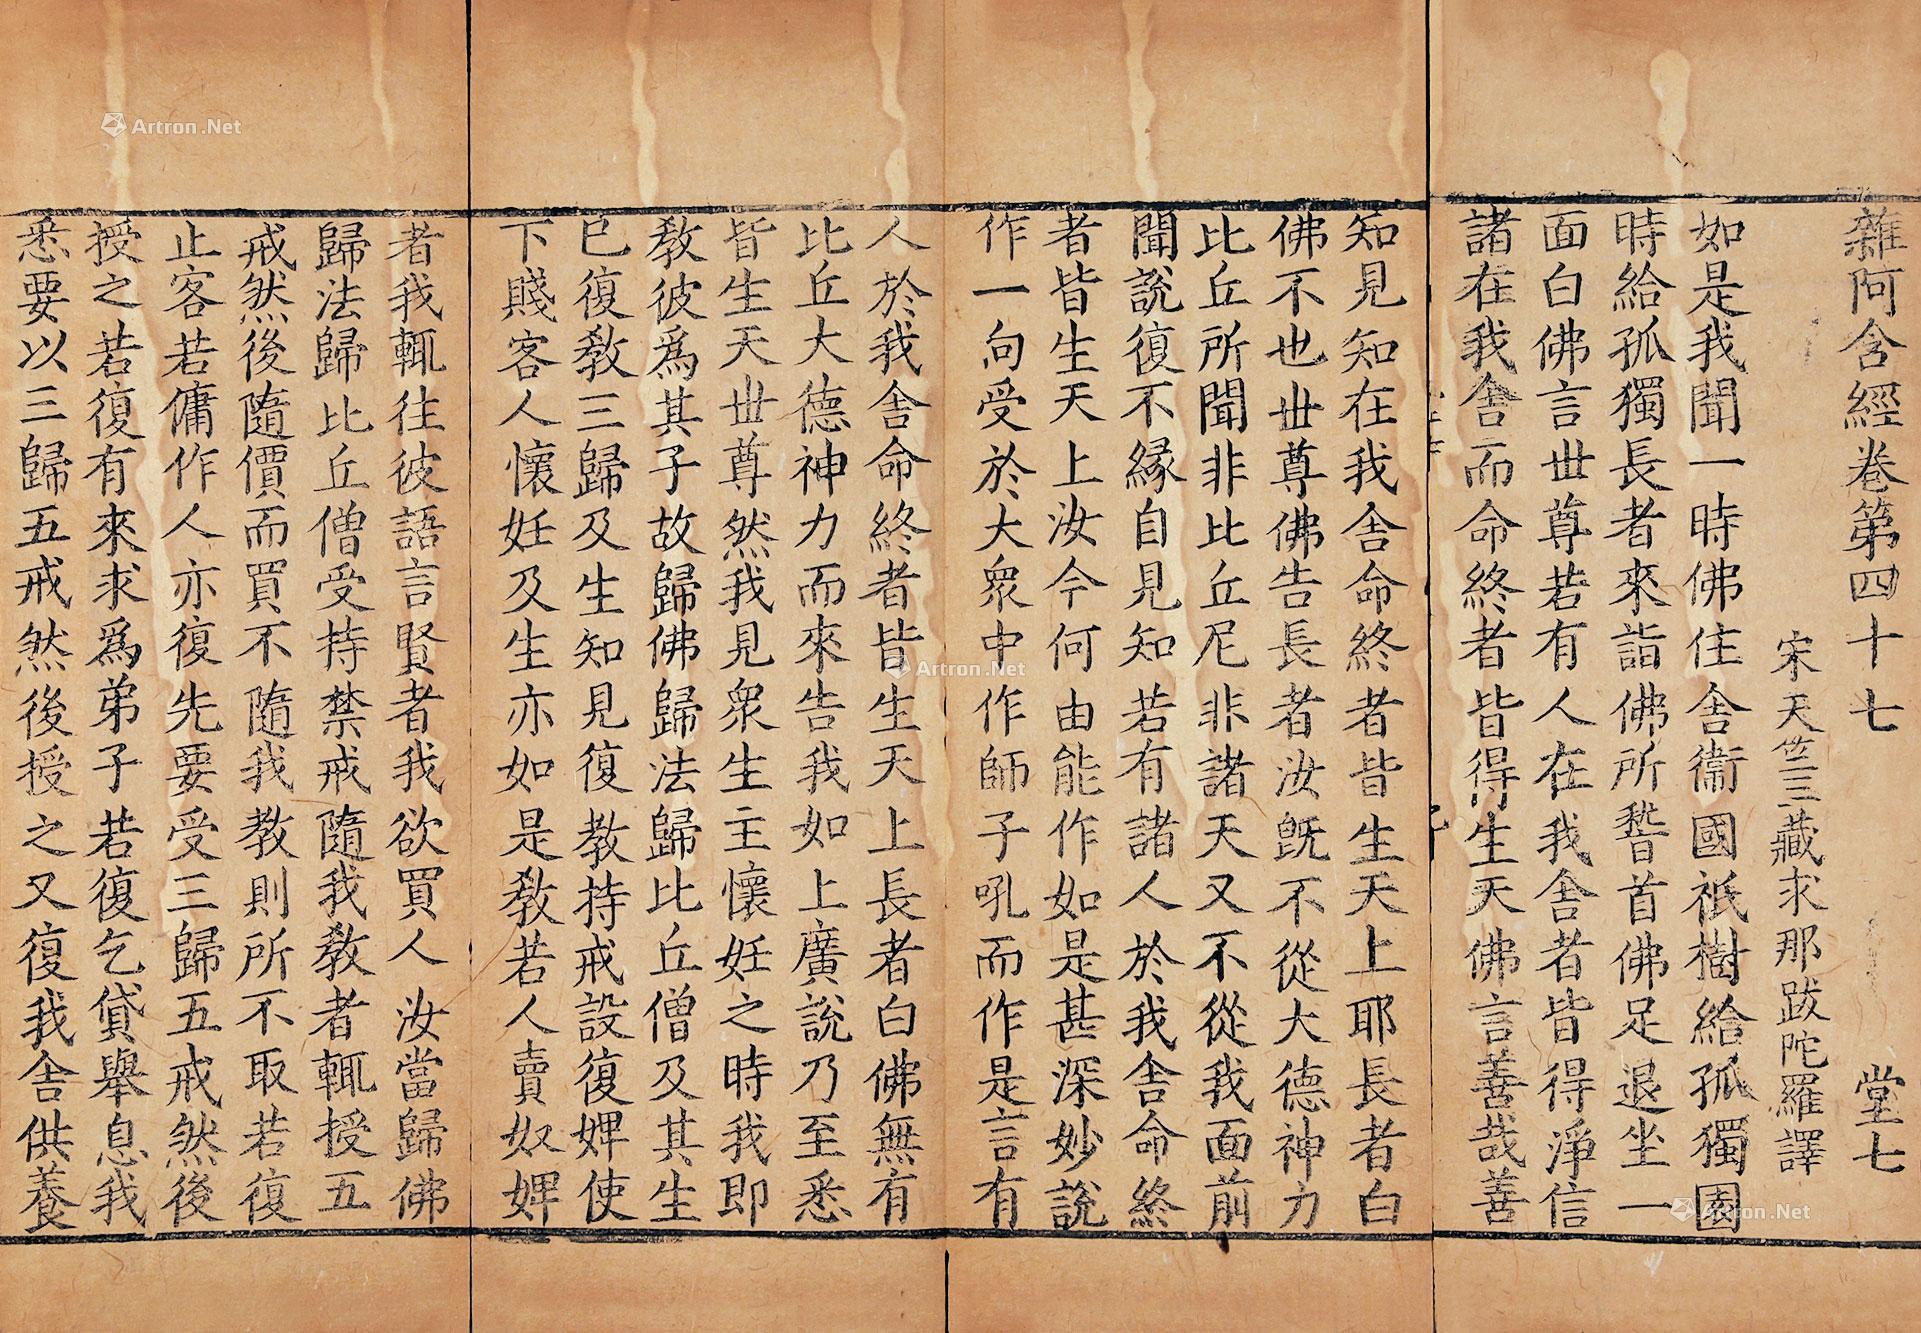 雜阿含經卷第四十七 堂七
宋天竺三藏求那跋陀羅譯
如是我聞一時佛住舍衞國祇樹給孤獨園
時給孤獨長者來詣佛所䭫首佛足退坐一
面白佛言世尊若有人在我舍者皆得淨信
諸在我舍而命終者皆得生天佛言善哉善
知見知在我舍命終者皆生天上耶長者白
佛不也世尊佛告長者汝旣不從大德神力
比丘所聞非比丘尼非諸天又不從我面前
聞說復不緣自見知若有諸人於我舍命終
者皆生天上汝今何由能作如是甚深妙說
作一句受於大衆中作師子吼而作是言有
人於我舍命終者皆生天上長者白佛無有
比丘大德神力而來告我如上廣說乃至悉
皆生天世尊然我見衆生主懷妊之時我即
教彼爲其子故歸佛歸法歸比丘僧及其生
已復教三歸及生知見復教持戒設復婢使
下賤客人懷妊及生亦如是教若人賣奴婢
者我輒往彼語言賢者我欲買人汝當歸佛
歸法歸比丘僧受持禁戒隨我教者輒授五
戒然後隨價而買不隨我教則所不取若復
止客若傭作人亦復先要受三歸五戒然後
授之若復有來求爲弟子若復乞貸舉息我
悉要以三歸五戒然後授之又復我舍供養
Artron.Net
Artron.Net
Artron.Net